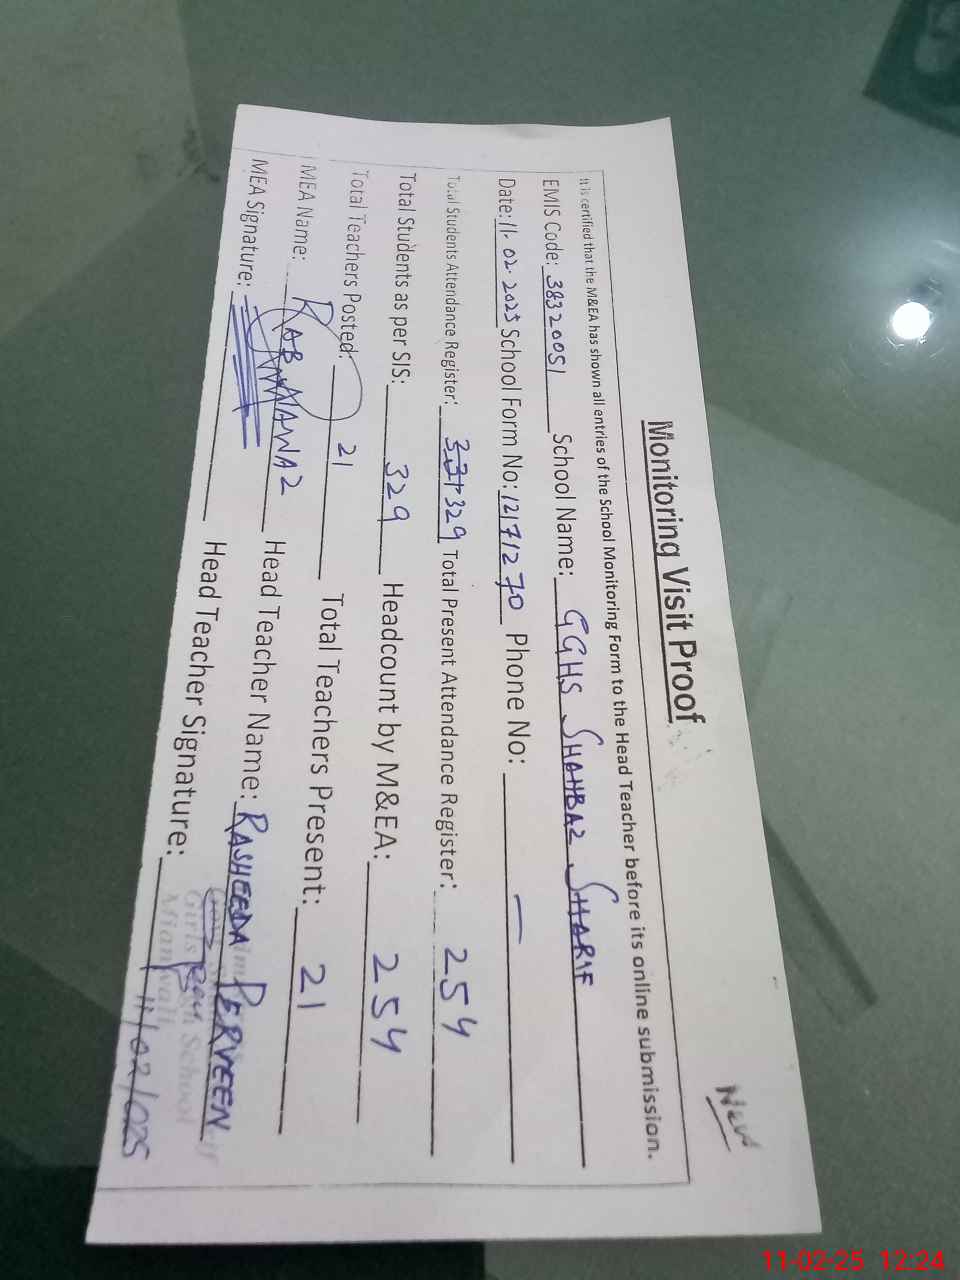 New
Monitoring Visit Proof
It is certified that the M&EA has shown all entries of the School Monitoring Form to the Head Teacher before its online submission.
EMIS Code: 38320051 School Name: GGHS SHAHBAZ SHARIF
Date: 11.02.2025 School Form No: 12171270 Phone No: —
Total Students Attendance Register: 331 329 Total Present Attendance Register: 254
Total Students as per SIS: 329 Headcount by M&EA: 254
Total Teachers Posted: 21 Total Teachers Present: 21
MEA Name: RAB NAWAZ Head Teacher Name: RASHEEDA PERVEEN
MEA Signature: Head Teacher Signature:
Girls School
Mianwali
11/02/025
11-02-25 12:24